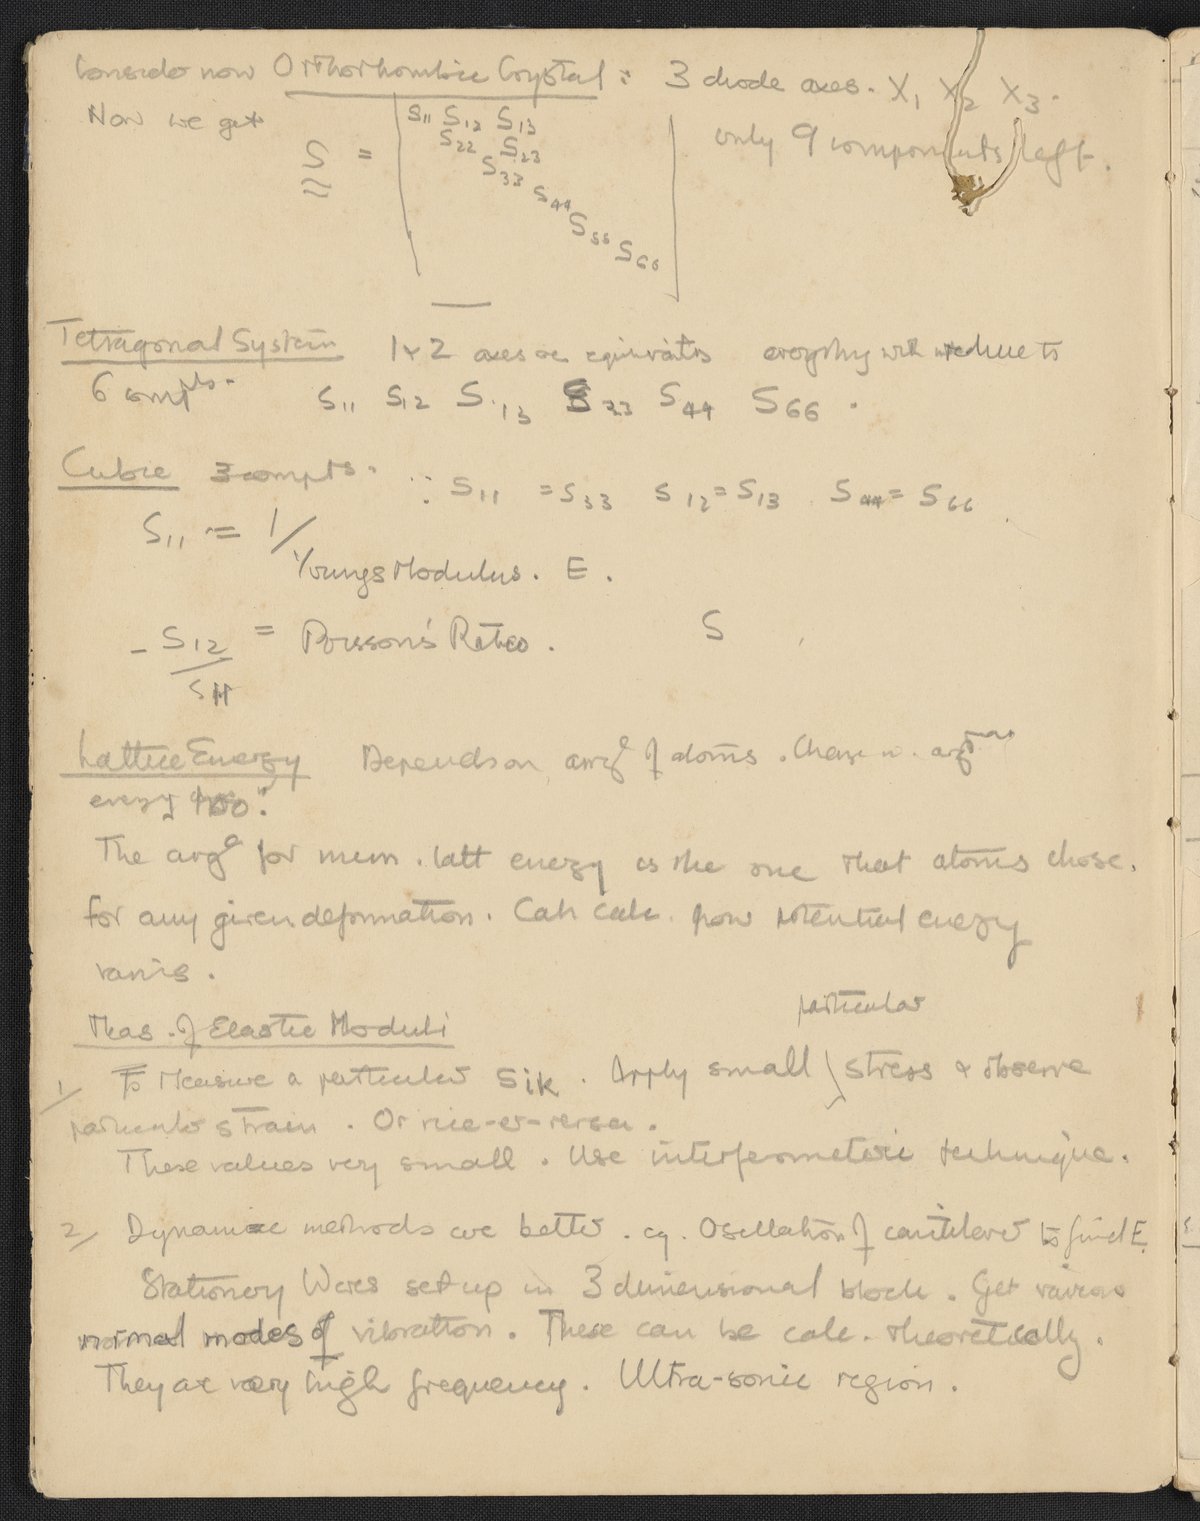 Consider now Orthorhombic Crystal : 3 diode axes. X1 X2 X3.
Now we get
S = | S11 S12 S13
S22 S23
S33
S44
S55
S66 |
only 9 components left.
Tetragonal System 1 & 2 axes are equivalent everything will reduce to
6 compts. S11 S12 S13 S33 S44 S66.
Cubic 3 compts. ∵ S11 = S33 S12 = S13 S44 = S66
S11 = 1/
Youngs Modulus. E.
- S12 / S11 = Poisson's Ratio. S
Lattice Energy Depends on arrgt of atoms. Change in
energy too.
The argt for mum. latt energy is the one that atoms chose.
For any given deformation. Can calc. how potential energy
varies.
Meas. of Elastic Moduli
particular
1/ To Measure a particular Sik. Apply small } stress & observe
particular strain. Or vice-er-versa.
These values very small. Use interferometric technique.
2/ Dynamic methods are better. eg. Oscillation of cantilever to find E.
Stationary Waves set up in 3 dimensional block. Get various
normal modes of vibration. These can be calc. theoretically.
They are very high frequency. Ultra-sonic region.